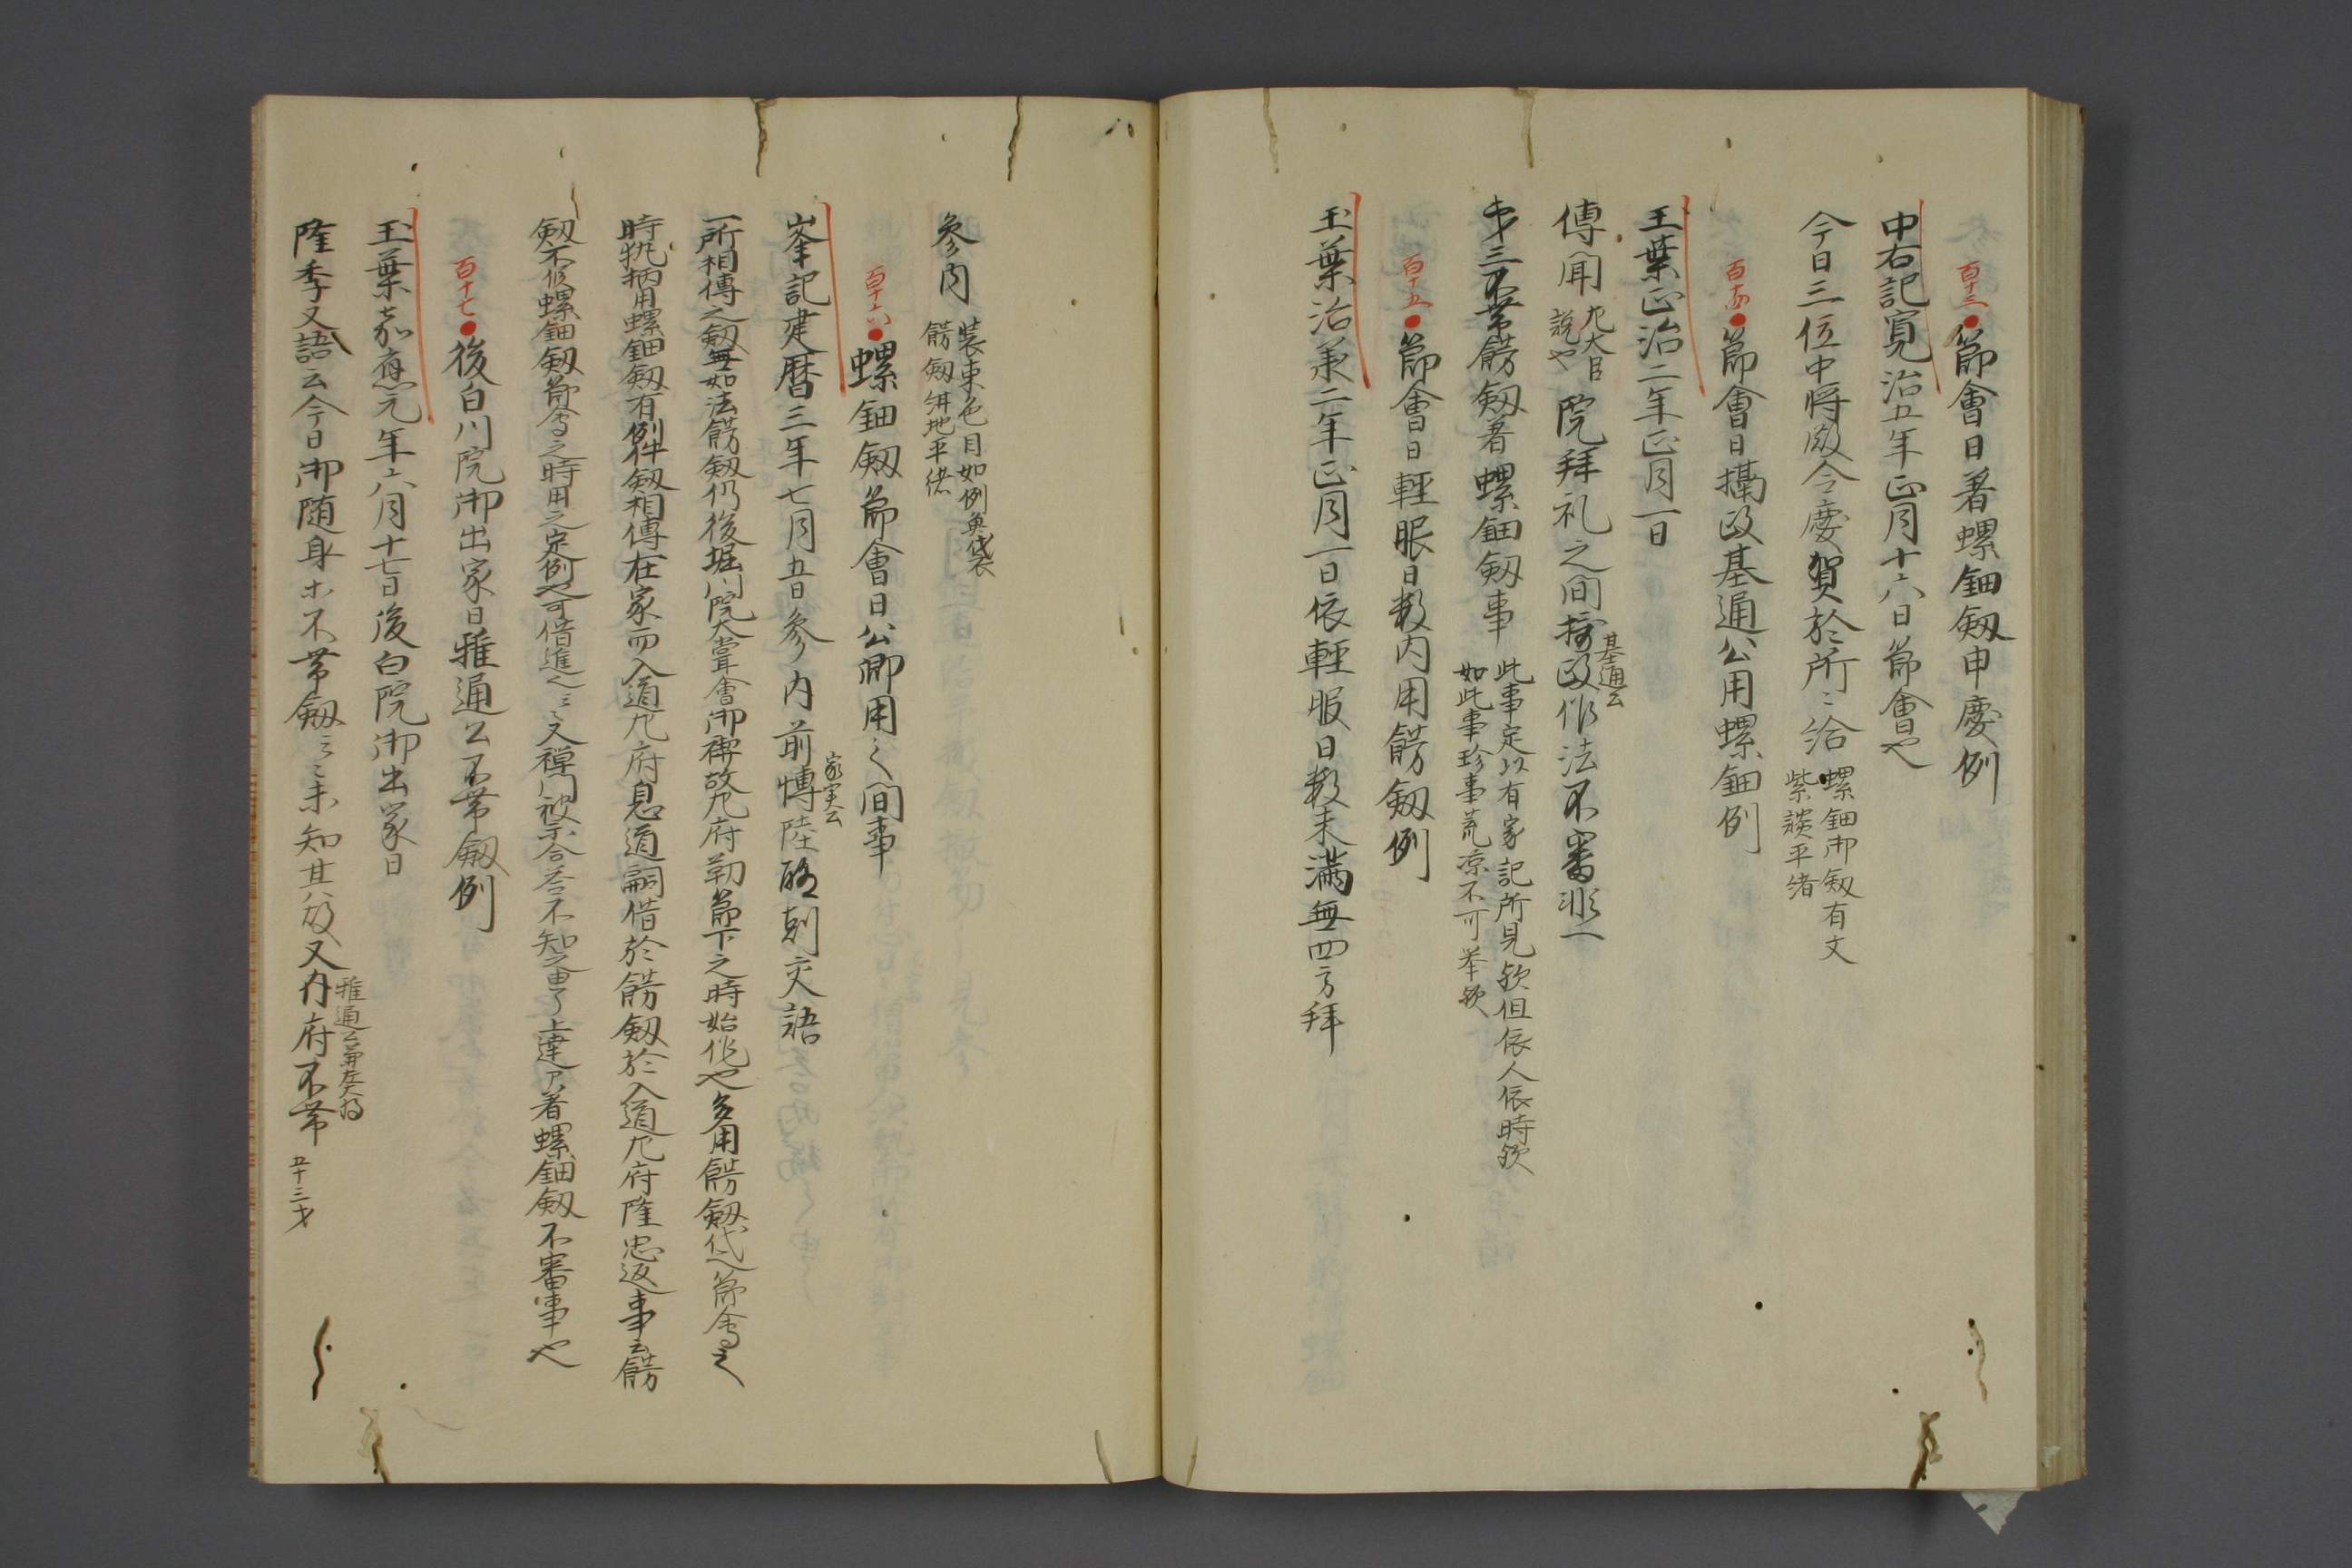 百十三●節會日著螺鈿釼申慶例
中右記寛治五年正月十六日節會也
今日三位中将殿令慶賀於所〻給
螺鈿御釼有文
紫談平緒
百十四●節會日摂政基通公用螺鈿例
玉葉正治二年正月一日
傳聞
左大臣
説也
院拜礼之間摂政作法不審非一
基通公
第三不帯餝釼著螺鈿釼事
此事定以有家記所見欤但依人依時欤
如此事珍事荒凉不可挙欤
百十五●節會日輕服日数内用餝釼例
玉葉治承二年正月一日依輕服日数未満無四方拜
参内
装束色目如例魚袋
餝釼紺地平緒
百十六●螺鈿釼節會日公卿用之間事
峯記建暦三年七月五日参内前博陸
家実公
一所相傳之釼無如法餝釼仍後堀川院大嘗會御禊故左府勤節下之時始作也多用餝釼代節會之
時執柄用螺鈿釼有例件釼相傳在家而入道左府息道嗣借於餝釼於入道左府隆忠返事云餝
釼不候螺鈿釼節會之時用之定例也可借進之云〻又禅門被示合答不知之由了上達ア著螺鈿釼不審事也
百十七●後白川院御出家日雅通公不帯釼例
玉葉嘉應元年六月十七日後白院御出家日
隆季又語云今日御随身ホ不帯釼云〻未知其故又内府不帯
雅通公兼左大将
五十三才